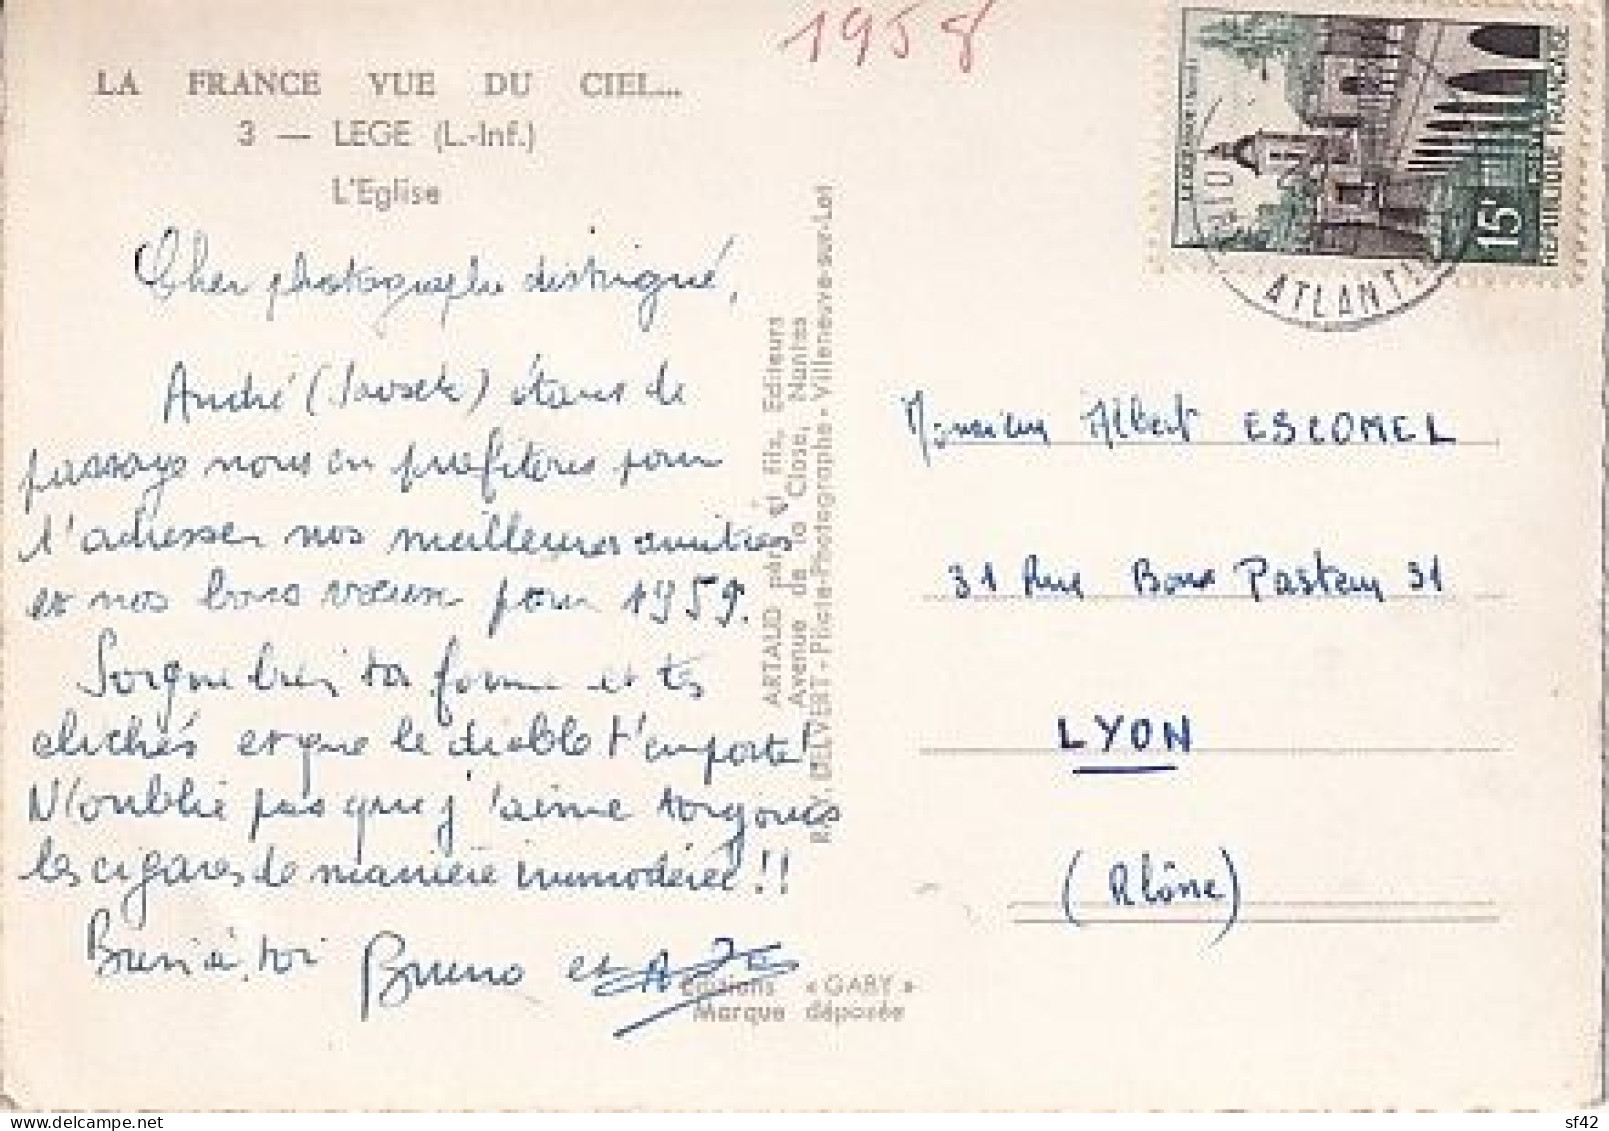 1958
LA FRANCE VUE DU CIEL...
3 — LEGE (L.-Inf.)
L'Eglise
Cher photographe distingué,
André (                ) étant de
passage nous en profitons pour
t'adresser nos meilleures amitiés
et nos bons vœux pour 1959.
Soigne bien ta forme et tes
clichés et que le diable t'emporte!
N'oublie pas que j'aime toujours
les cigares de manière immodérée!!
Bien à toi Bruno et
ARTAUD père et Fils, Editeurs
Avenue de la Close, Nantes
RAY. DELVERT - Pilote-Photographe - Villeneuve-sur-Lot
Editions « GABY »
Marque déposée
LE QUESNOY (Nord)
15F
POSTES
REPUBLIQUE FRANÇAISE
ATLANTIQUE
Monsieur Albert ESCOMEL
31 Rue Bon Pasteur 31
LYON
(Rhône)
sf42